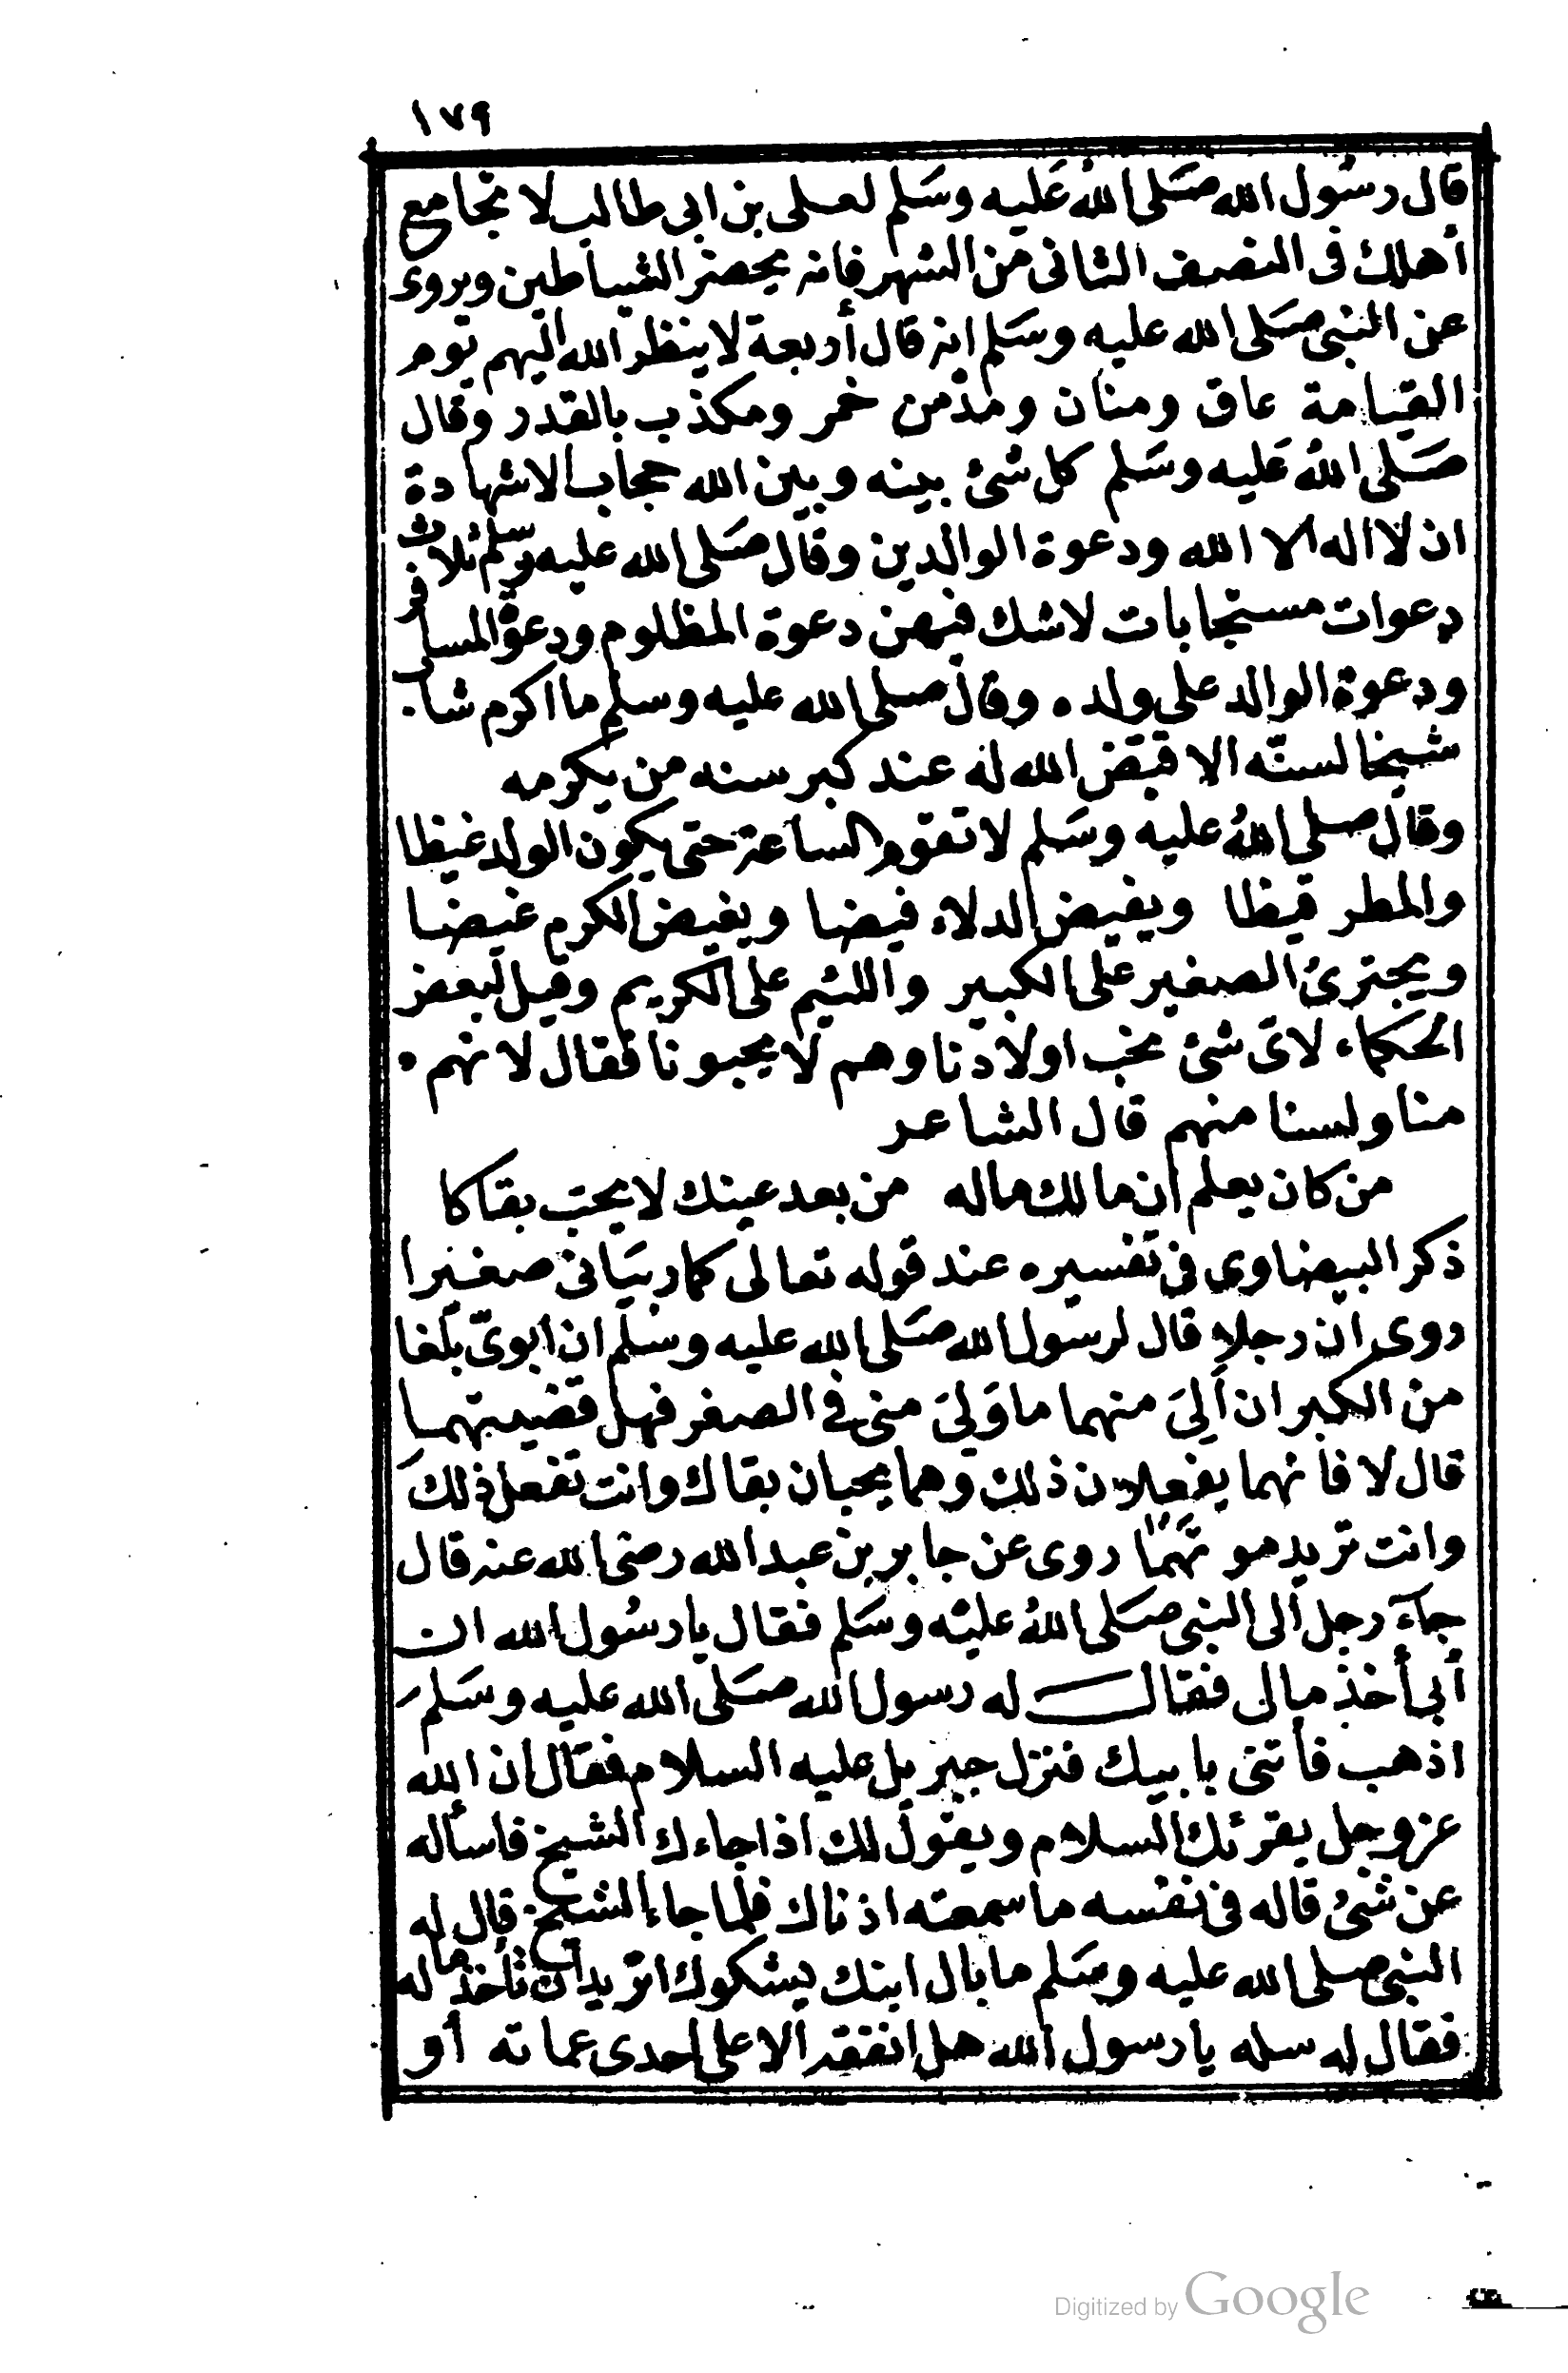 ١٧٩
قال رسُول الله صَلى اللهُ عَليه وسَلم لعلى بن ابى طالب لا تجامع
أهلك فى النصف الثانى من الشهر فانه يحضر الشياطين ويروى
عن النبى صَلى الله عليه وسَلم انه قال أربعة لا ينظر الله اليهم يوم
القيامة عاق ومنان ومدمن خمر ومكذب بالقدر وقال
صَلى اللهُ عَليه وسَلم كل شئ بينه وبين الله حجاب الا شهادة
ان لا اله الا الله ودعوة الوالدين وقال صَلى الله عليه وسلم ثلاث
دعوات مستجابات لا شك فيهن دعوة المظلوم ودعوة المسافر
ودعوة الوالد على ولده وقال صلى الله عليه وسلم ما اكرم شاب
شيخا لسنّه الا قيض الله له عند كبر سنه من يكرمه
وقال صلى اللهُ عليه وسَلم لا تقوم الساعة حتى يكون الولد غيظا
والمطر قيظا ويفيض الدلاء فيضا ويغيض الكرم غيضا
ويجترئ الصغير على الكبير واللئيم على الكريم وقيل لبعض
الحكماء لاى شئ نحب اولادنا وهم لا يحبونا فقال لانهم
منا ولسنا منهم قال الشاعر
من كان يعلم ان مالك ماله من بعد عينك لا يحب بقاكا
ذكر البيضاوى فى تفسيره عند قوله تعالى كما ربيَانى صغيرا
روى ان رجلا قال لرسول الله صَلى الله عليه وسَلم ان ابوىّ بلغا
من الكبر ان ألِىَ منهما ما وَلِىَ منى فى الصغر فهل قضيتهما
قال لا فانهما يفعلان ذلك وهما يحبان بقاك وانت تفعل ذلك
وانت تريد موتهمَا روى عن جابر بن عبد الله رضى الله عنه قال
جاءَ رجل الى النبى صَلى اللهُ عليه وسَلم فقال يا رسُول الله ان
أبى أخذ مالى فقال له رسول الله صَلى الله عليه وسَلم
اذهب فأتنى بابيك فنزل جبريل عليه السلام فقال ان الله
عز وجل يقرئك السلام ويقول لك اذا جاءك الشيخ فاسأله
عن شئ قاله فى نفسه ما سمعته اذناك فلما جاء الشيخ قال له
النبى صلى الله عليه وسَلم ما بال ابنك يشكوك اتريد ان تأخذ ماله
فقال له سله يا رسول الله هل انفقه الا على احدى عماته أو
Digitized by Google